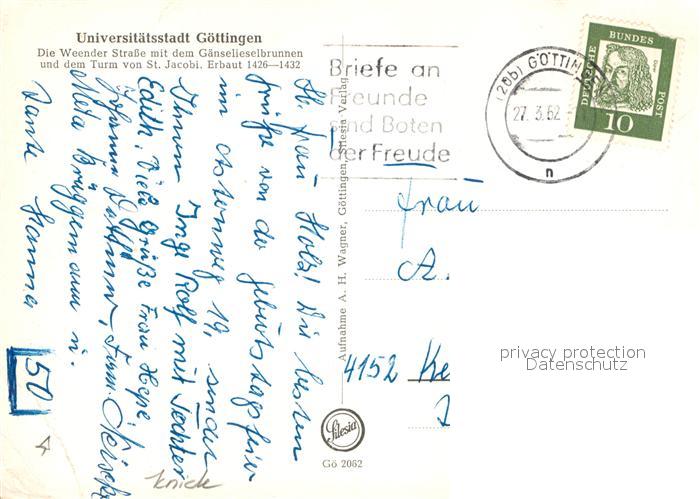 Universitätsstadt Göttingen
Die Weender Straße mit dem Gänselieselbrunnen
und dem Turm von St. Jacobi. Erbaut 1426—1432
Briefe an
Freunde
sind Boten
der Freude
(20b) GÖTTIN
27. 3. 62
n
DEUTSCHE
BUNDES
POST
10
Lb. Frau Holz! Die besten
Grüße von der Geburtstagsfeier
im Asternweg 19, senden
Ihnen Inge Rolf mit Tochter
Edith. Viele Grüße Frau Hepe
Johanna
Meta Brüggemann u.
Tante Hanna
50
Aufnahme A. H. Wagner, Göttingen, Silesia Verlag
Frau
A.
4152 Ke
Silesia
Gö 2062
knick
privacy protection
Datenschutz